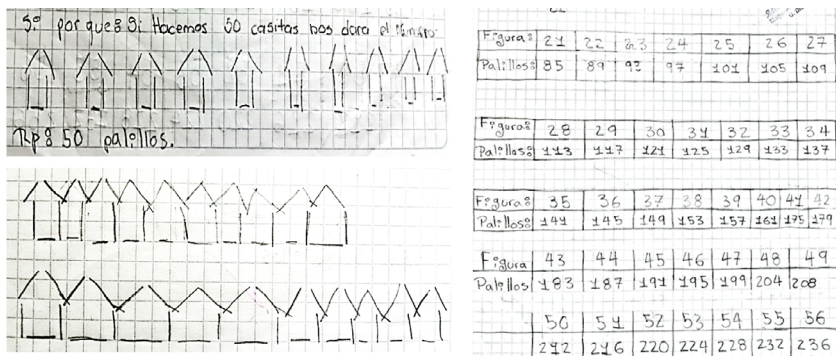 5° por que8 Si Hacemos 50 casitas nos dara el
Rp8 50 palillos.
Figura8 21 22 23 24 25 26 27
Palillos8 85 89 93 97 101 105 109
Figura8 28 29 30 31 32 33 34
Palillos8 113 117 121 125 129 133 137
Figura8 35 36 37 38 39 40 41 42
Palillos8 141 145 149 153 157 161 175 179
Figura 43 44 45 46 47 48 49
Palillos 183 187 191 195 199 204 208
50 51 52 53 54 55 56
212 216 220 224 228 232 236